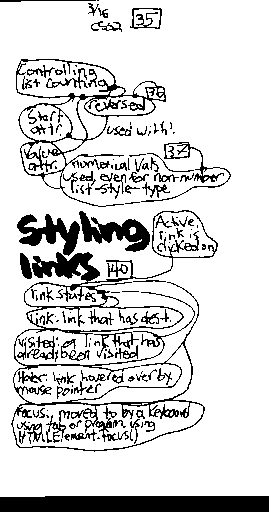 3/16
CSS2 35
Controlling
list counting
36
reversed
Start
attr.
used with!
Value
attr.
37
numerical vals
used, even for non-number
list-style-type
Styling
links
40
Active:
link is
clicked on
link states
link: link that has dest.
visited: a link that has
already been visited
Hover: link hovered over by
mouse pointer
Focus: moved to by a keyboard
using tab or program using
HTMLElement.focus()